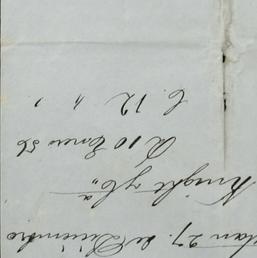 27. de Diciembre
Knight y Cª
10 Enero 56
C. 12 " "